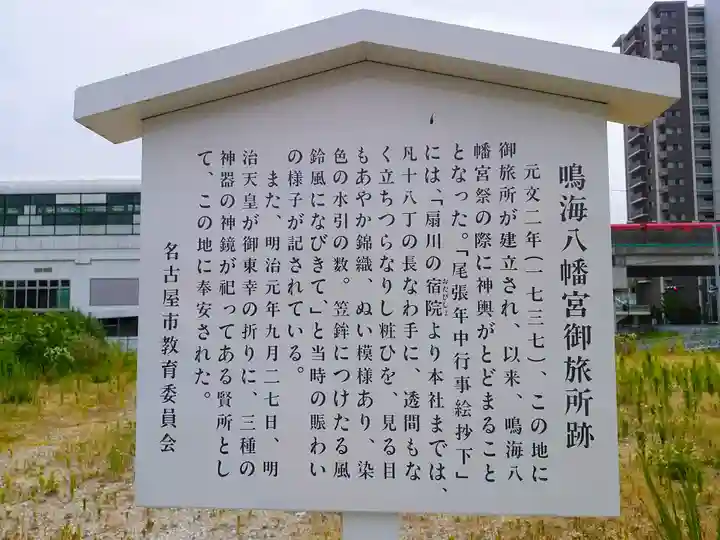 鳴海八幡宮御旅所跡
元文二年(一七三七)、この地に
御旅所が建立され、以来、鳴海八
幡宮祭の際に神輿がとどまること
となった。「尾張年中行事絵抄下」
には、「扇川の宿院より本社までは、
おたびしょ
凡十八丁の長なわ手に、透間もな
く立ちつらなりし粧ひを、見る目
もあやか錦織、ぬい模様あり、染
色の水引の数。笠鉾につけたる風
鈴風になびきて、」と当時の賑わい
の様子が記されている。
また、明治元年九月二七日、明
治天皇が御東幸の折りに、三種の
神器の神鏡が祀ってある賢所とし
て、この地に奉安された。
名古屋市教育委員会